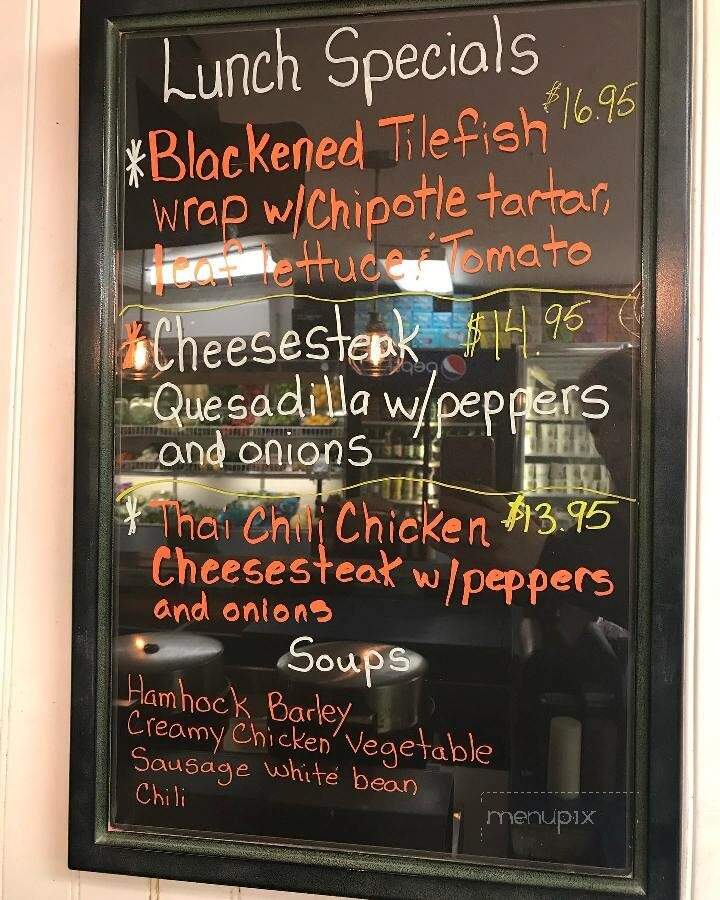 Lunch Specials
$16.95
*Blackened Tilefish
wrap w/Chipotle tartar,
leaf lettuce & Tomato
*Cheesesteak $14.95
Quesadilla w/peppers
and onions
*Thai Chili Chicken $13.95
Cheesesteak w/peppers
and onions
Soups
Hamhock Barley
Creamy Chicken Vegetable
Sausage white bean
Chili
pepsi
menupix